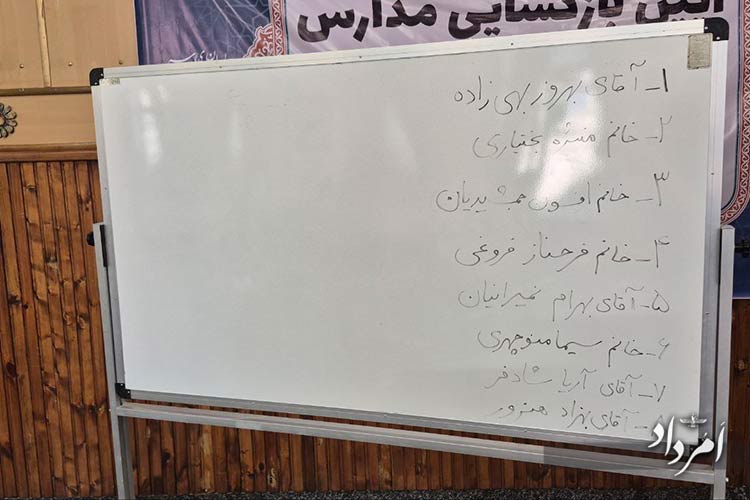 آئین بازگشایی مدارس
۱- آقای بهروز بهی زاده
۲- خانم منیژه بختیاری
۳- خانم افسون جمشیدیان
۴- خانم فرحناز فروغی
۵- آقای بهرام نمیرانیان
۶- خانم سیما منوچهری
۷- آقای آریا شادفر
- آقای بهزاد هنرور
اَمرداد